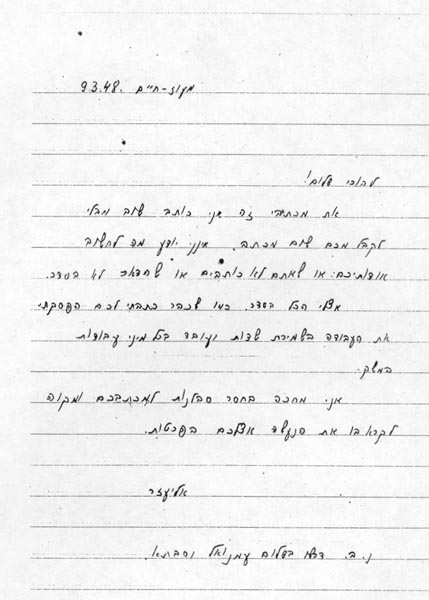 מעוז-חיים 9.3.48.
להורי שלום!
את מכתבי זה אני כותב שוב מבלי
לקבל מכם שום מכתב. אינני יודע מה לחשוב
אודותיכם: או שאתם לא כותבים או שהדאר לא בסדר.
אצלי הכל בסדר. כמו שכבר כתבתי לכם הפסקתי
את העבודה בשמירת שדות ועובד בכל מיני עבודות
במשק.
אני מחכה בחסר סבלנות למכתבכם ומקוה
לקרא בו את הנעשה אצלכם בפרטות.
אליעזר
נ.ב. דרשו בשלום עמנואל וסבתא.